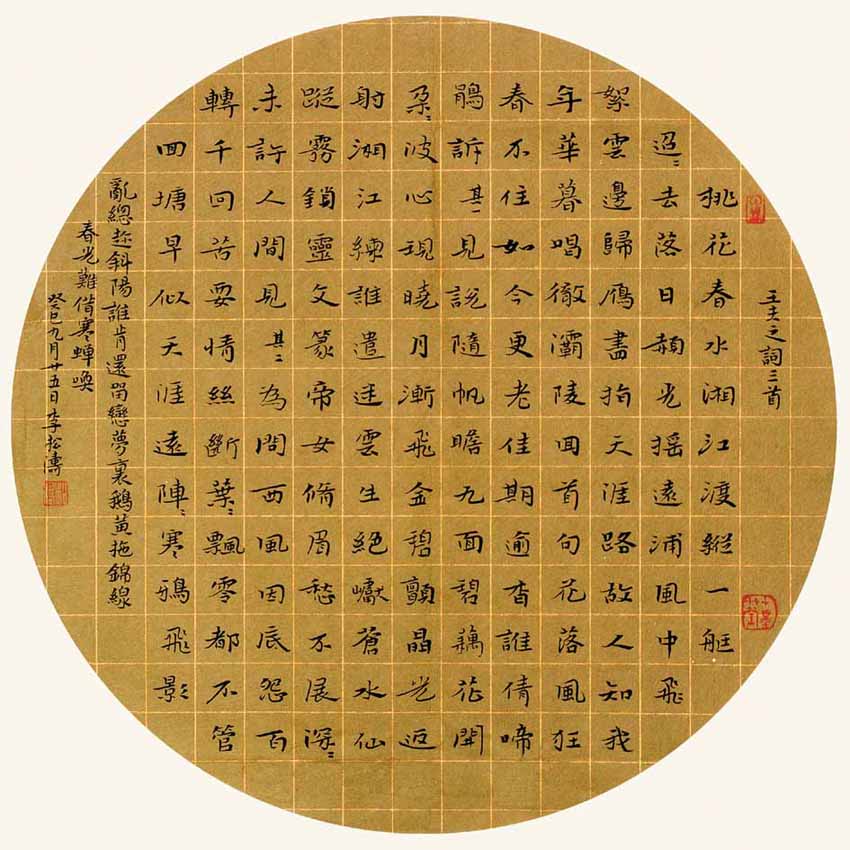 王夫之詞三首
桃花春水湘江渡縱一艇
迢〻去落日赬光搖遠浦風中飛
絮雲邊歸雁盡指天涯路故人知我
年華暮唱徹灞陵回首句花落風狂
春不住如今更老佳期逾杳誰倩啼
鵑訴其一見說隨帆瞻九面碧藕花開
朶〻波心現曉月漸飛金碧顫晶光返
射湘江練誰遣迷雲生絕巘蒼水仙
蹤霧鎖靈文篆帝女脩眉愁不展深〻
未許人間見其二為問西風因底怨百
轉千回苦要情絲斷葉〻飄零都不管
回塘早似天涯遠陣〻寒鴉飛影
亂總趂斜陽誰肯還留戀夢裏鵝黃拖錦線
春光難借寒蟬喚
癸巳九月廿五日李松濤